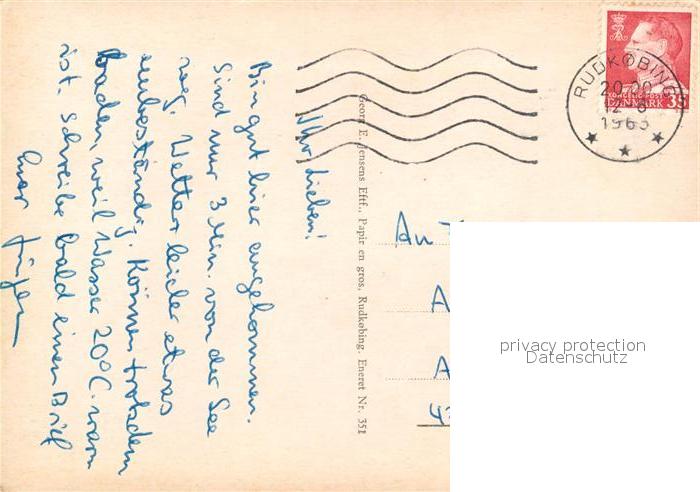 Ihr Lieben!
Bin gut hier angekommen.
Sind nur 3 Min. von der See
weg. Wetter leider etwas
unbeständig. Können trotzdem
baden, weil Wasser 20°C. warm
ist. Schreibe bald einen Brief
Euer Jürgen
Georg E. Jensens Eftf., Papir en gros, Rudkøbing. Eneret Nr. 351
RUDKØBING
20-20
12 8
1963
KONGELIG POST
DANMARK 35
An
A
A
privacy protection
Datenschutz